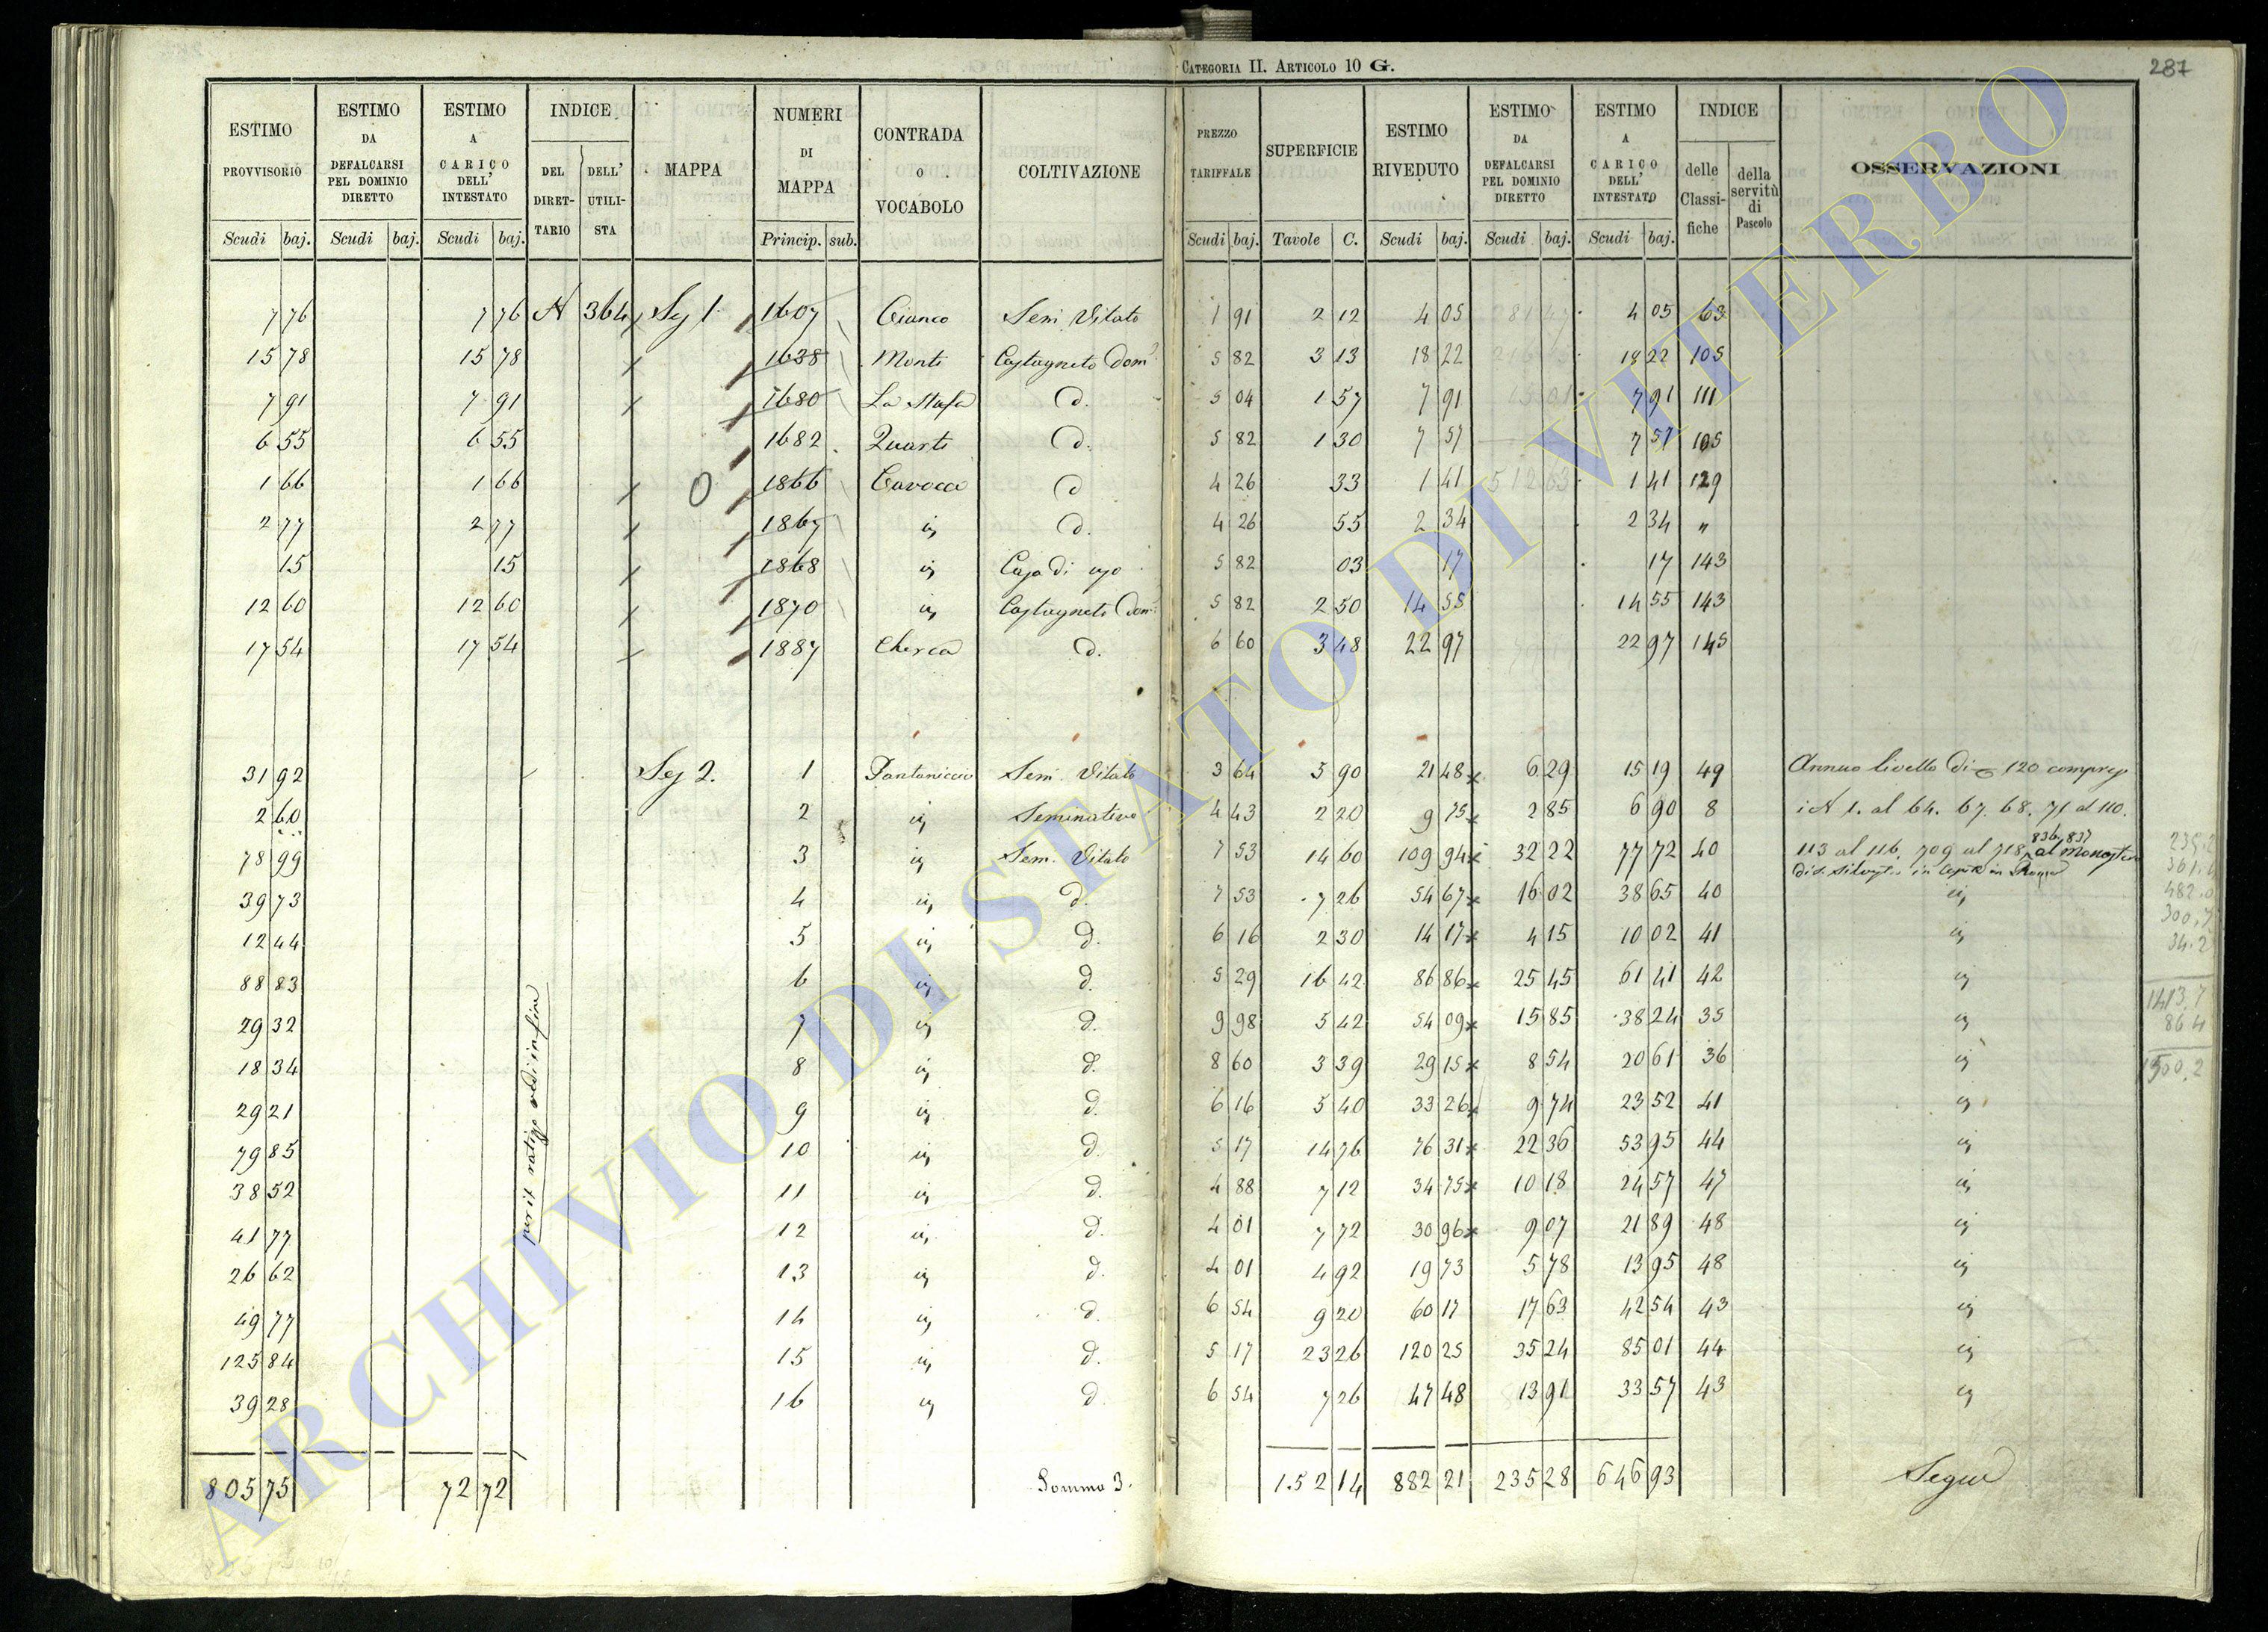 CATEGORIA II. ARTICOLO 10 G.
287
ESTIMO PROVVISORIO Scudi baj. ESTIMO DA DEFALCARSI PEL DOMINIO DIRETTO Scudi baj. ESTIMO A CARICO DELL' INTESTATO Scudi baj. INDICE DEL DIRETTARIO DELL' UTILISTA MAPPA NUMERI DI MAPPA Princip. sub. CONTRADA O VOCABOLO COLTIVAZIONE PREZZO TARIFFALE Scudi baj. SUPERFICIE Tavole C. ESTIMO RIVEDUTO Scudi baj. ESTIMO DA DEFALCARSI PEL DOMINIO DIRETTO Scudi baj. ESTIMO A CARICO DELL' INTESTATO Scudi baj. INDICE delle Classifiche della servitù di Pascolo OSSERVAZIONI
7 76 7 76 A 364 Sez 1 1607 Cianco Sem Vitato 1 91 2 12 4 05 4 05 63
15 78 15 78 1638 Monti Castagneto Dom 5 82 3 13 18 22 18 22 105
7 91 7 91 1680 La Stafa d. 5 04 1 57 7 91 7 91 111
6 55 6 55 1682 Quarti d. 5 82 1 30 7 57 7 57 105
1 66 1 66 0 1866 d 4 26 33 1 41 1 41 129
2 77 2 77 1867 d. 4 26 55 2 34 2 34 "
15 15 1868 Casa di uso 5 82 03 17 17 143
12 60 12 60 1870 Castagneto Dom 5 82 2 50 14 55 14 55 143
17 54 17 54 1887 d. 6 60 3 48 22 97 22 97 145
31 92 Sez 2. 1 Pantaniccio Sem. Vitato 3 64 5 90 21 48 6 29 15 19 49 Annuo livello di 120 compreso
2 60 2 Seminativo 4 43 2 20 9 75 2 85 6 90 8 i N 1. al 64. 67. 68. 71 al 110.
78 99 3 Sem. Vitato 7 53 14 60 109 94 32 22 77 72 40 113 al 116. 709 al 718, 836, 837 al Monastero
di S. Silvestro in Capite in Roma
39 73 4 d. 7 53 7 26 54 67 16 02 38 65 40
12 44 5 d. 6 16 2 30 14 17 4 15 10 02 41
88 83 6 d. 5 29 16 42 86 86 25 45 61 41 42
29 32 7 d. 9 98 5 42 54 09 15 85 38 24 35
18 34 8 d. 8 60 3 39 29 15 8 54 20 61 36
29 21 9 d. 6 16 5 40 33 26 9 74 23 52 41
79 85 10 d. 5 17 14 76 76 31 22 36 53 95 44
38 52 11 d. 4 88 7 12 34 75 10 18 24 57 47
41 77 12 d. 4 01 7 72 30 96 9 07 21 89 48
26 62 13 d. 4 01 4 92 19 73 5 78 13 95 48
49 77 14 d. 6 54 9 20 60 17 17 63 42 54 43
125 84 15 d. 5 17 23 26 120 25 35 24 85 01 44
39 28 16 d 6 54 7 26 47 48 13 91 33 57 43
per il vedi in fine
805 75 72 72 Somma 3. 152 14 882 21 235 28 646 93 Segue
482.0
300.7
34.2
1413.7
86 4
1500.2
ARCHIVIO DI STATO DI VITERBO